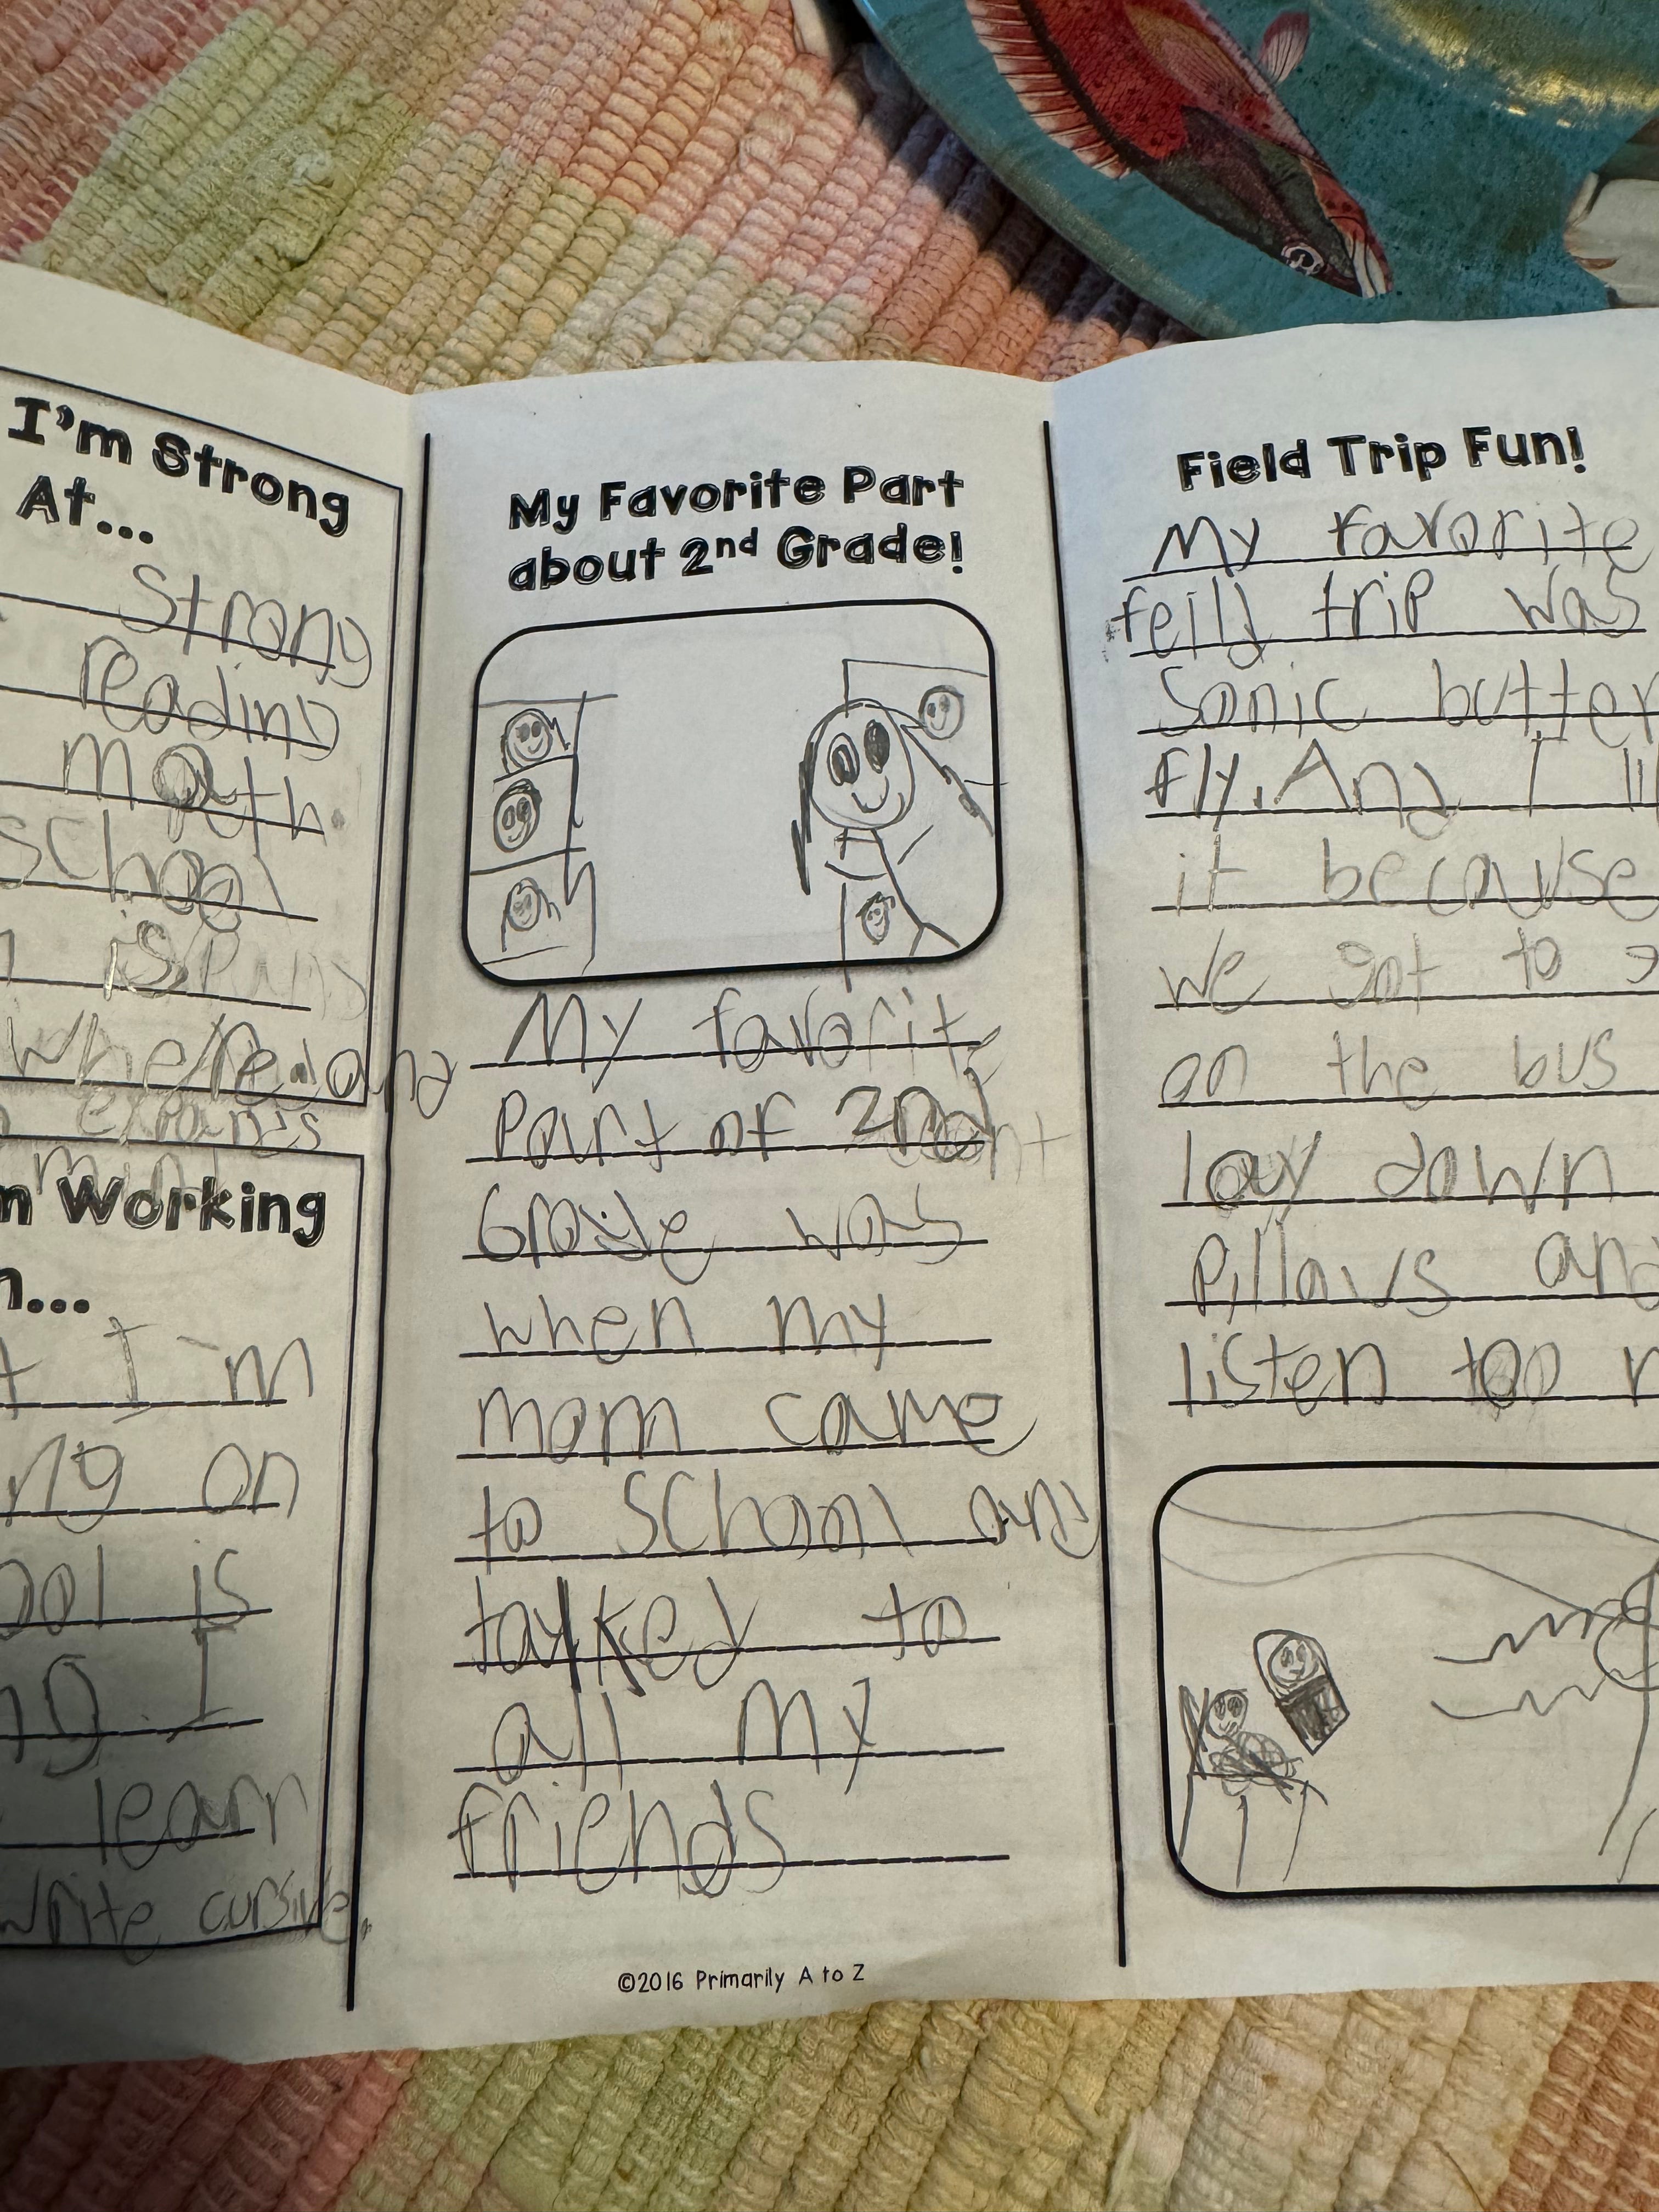 I'm Strong
At...
Strong
reading
math.
school
is
where
and
expands
Working
I'm
on
is
I
learn
write cursive.
My Favorite Part
about 2nd Grade!
My favorite
Part of 2nd
Grade was
when my
mom came
to school and
talked to
all my
friends
©2016 Primarily A to Z
Field Trip Fun!
My favorite
feild trip was
Sonic butter
fly. And I
it because
we got to
on the bus
lay down
Pillows and
listen too